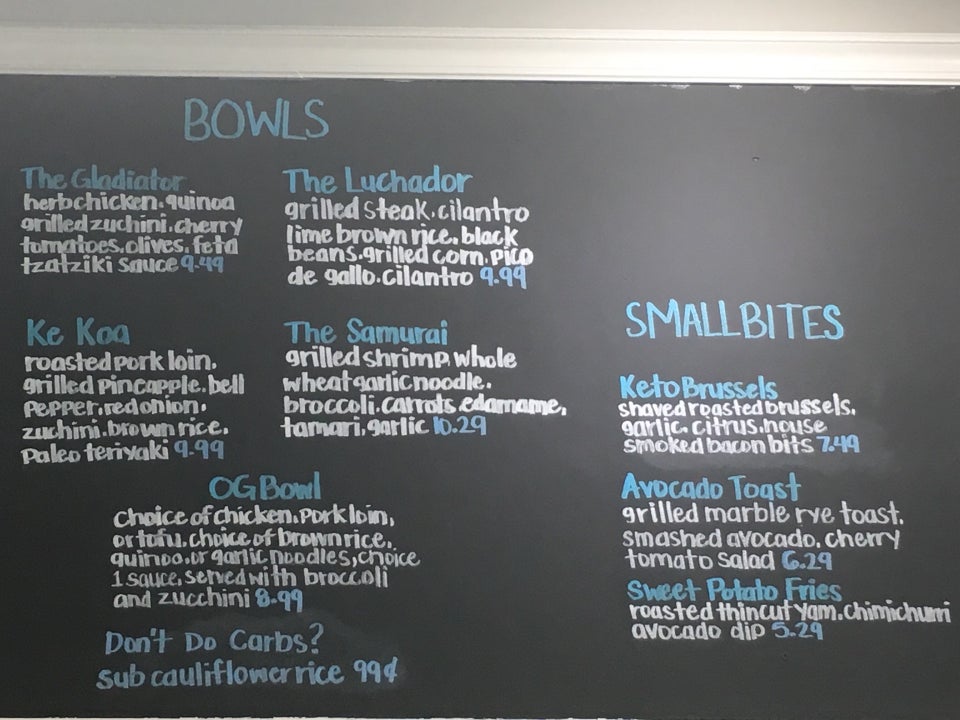 BOWLS
The Gladiator
herb chicken. quinoa
grilled zuchini. cherry
tomatoes. olives. feta
tzatziki sauce 9.49
The Luchador
grilled steak. cilantro
lime brown rice. black
beans. grilled corn. pico
de gallo. cilantro 9.99
Ke Koa
roasted pork loin.
grilled pineapple. bell
pepper. red onion.
zuchini. brown rice.
paleo teriyaki 9.99
The Samurai
grilled shrimp. whole
wheat garlic noodle.
broccoli. carrots. edamame,
tamari, garlic 10.29
OG Bowl
choice of chicken. pork loin,
or tofu. choice of brown rice.
quinoa. or garlic noodles, choice
1 sauce, served with broccoli
and zucchini 8.99
Don't Do Carbs?
sub cauliflower rice 99¢
SMALL BITES
Keto Brussels
shaved roasted brussels.
garlic. citrus. house
smoked bacon bits 7.49
Avocado Toast
grilled marble rye toast.
smashed avocado. cherry
tomato salad 6.29
Sweet Potato Fries
roasted thin cut yam. chimichurri
avocado dip 5.29